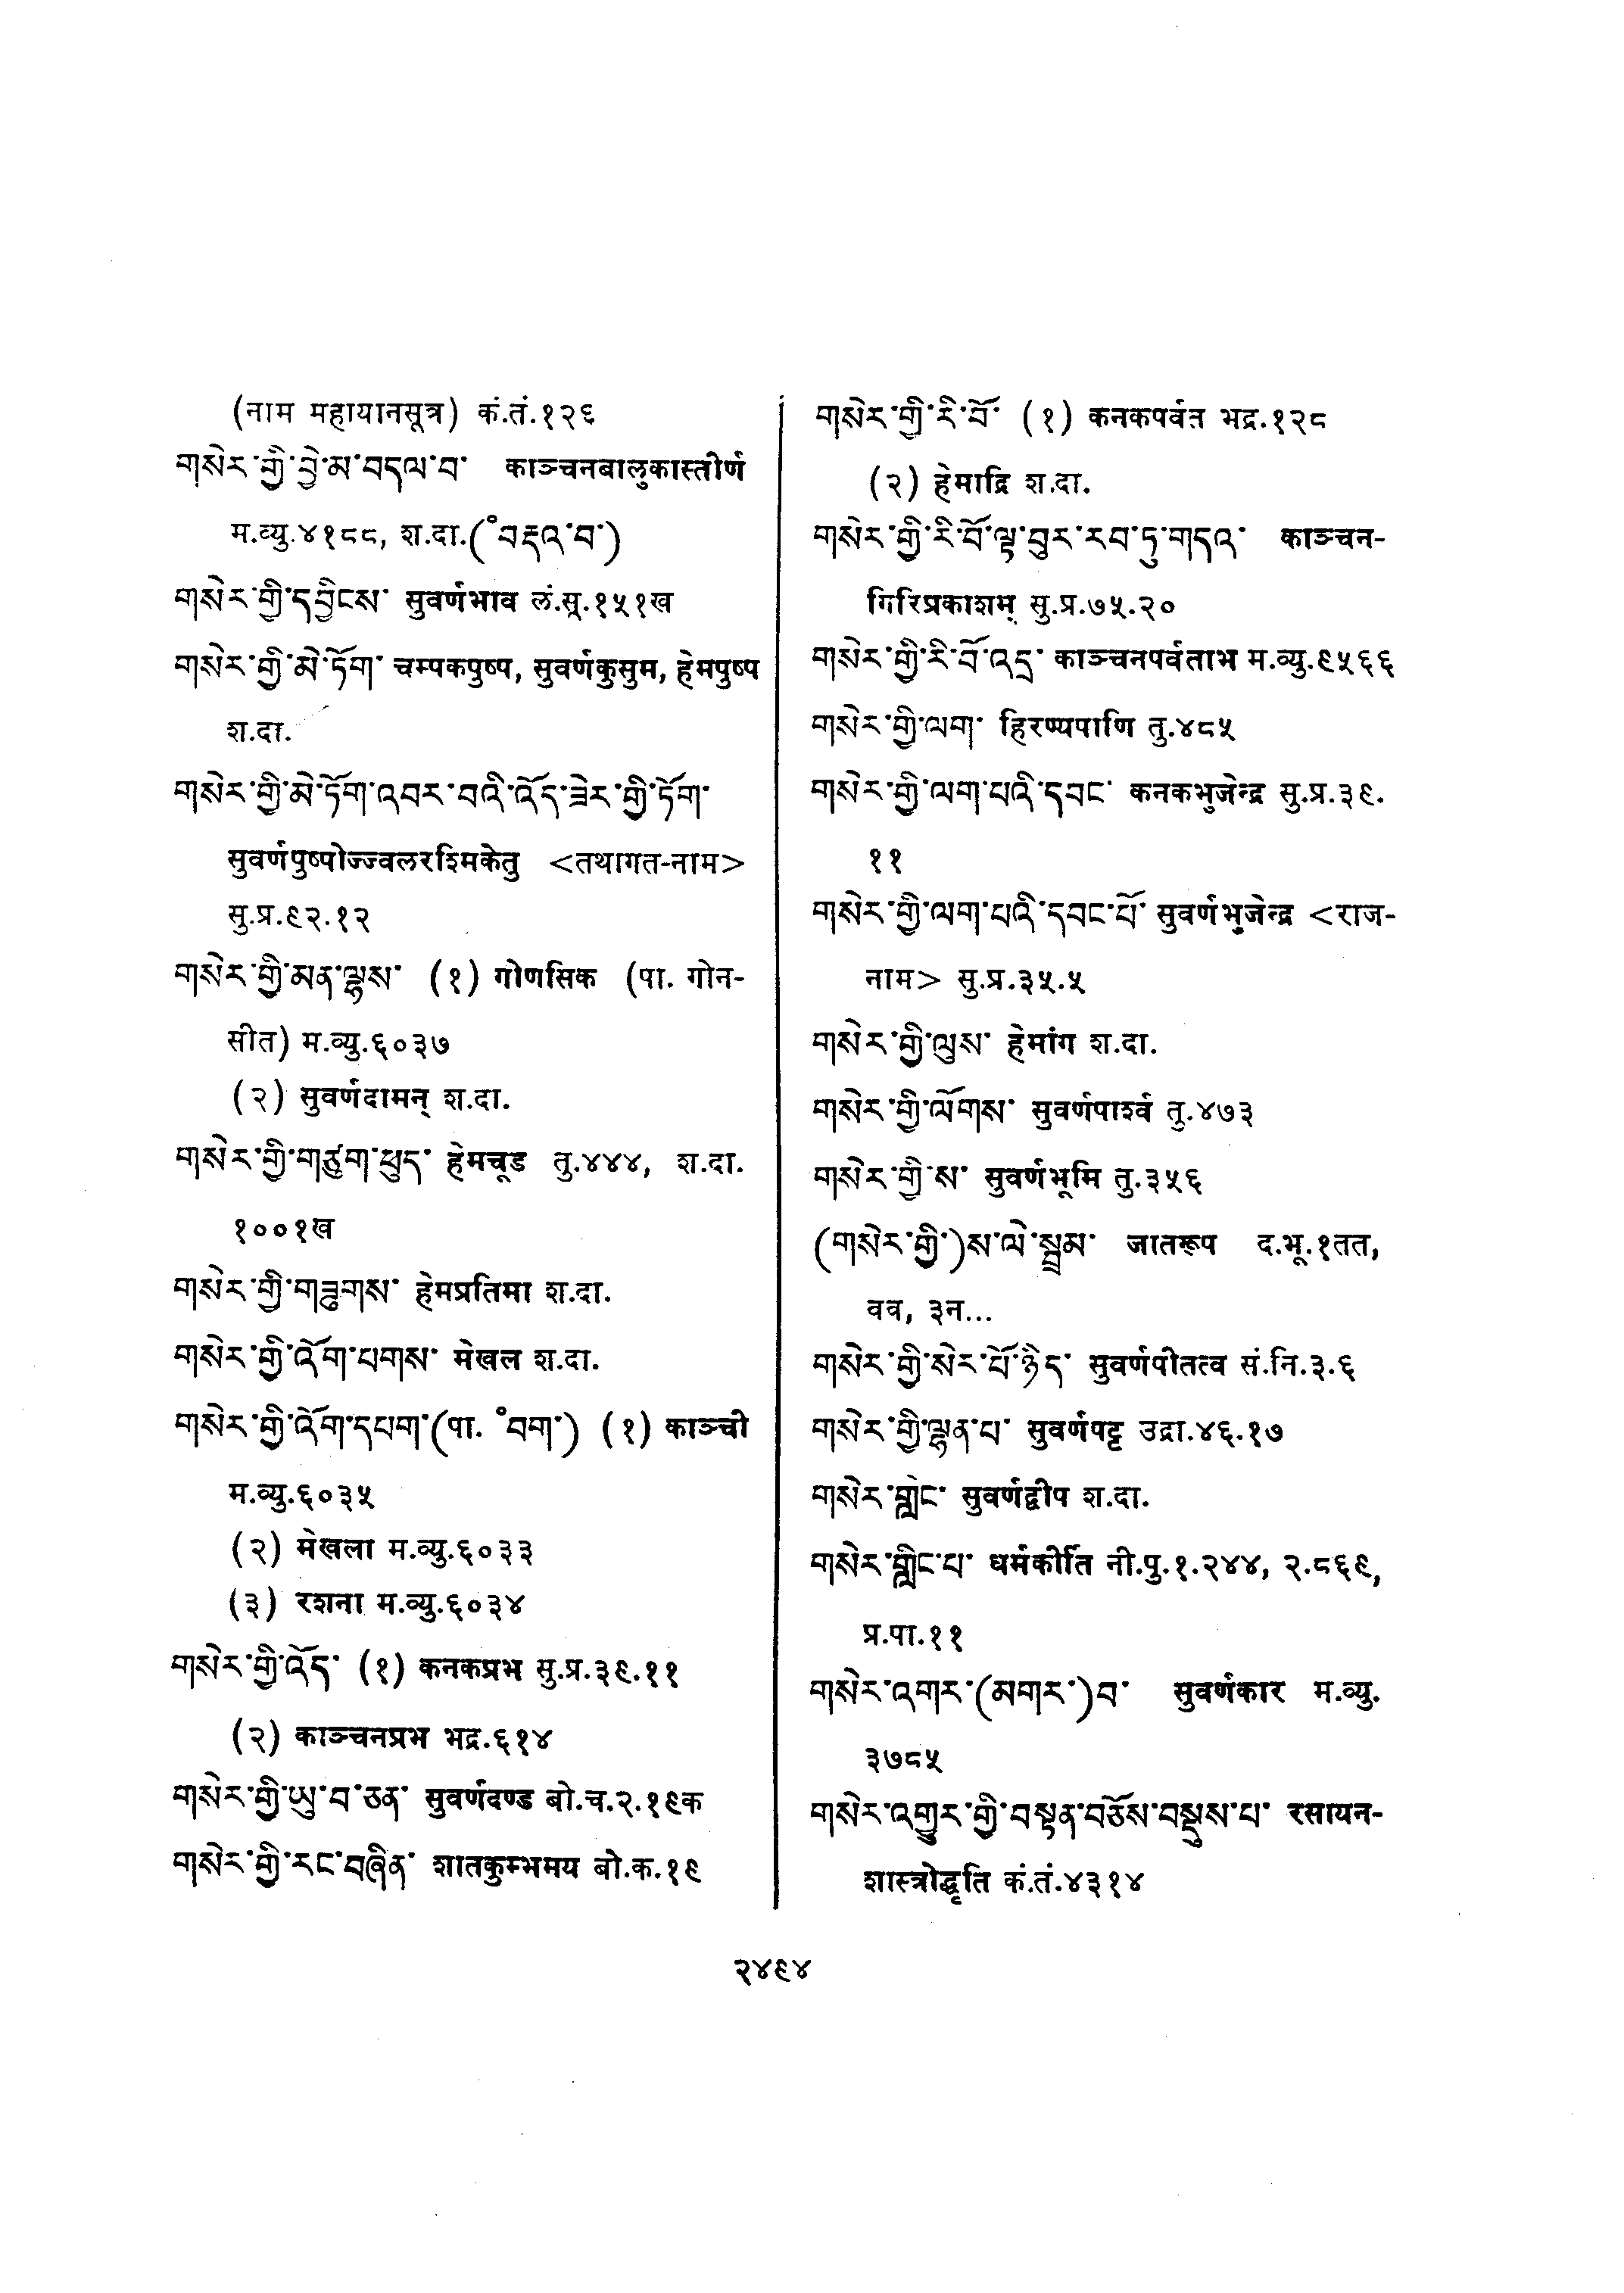 (नाम महायानसूत्र) कं.तं.१२६
གསེར་གྱི་བྱེ་མ་བདལ་བ་ काञ्चनबालुकास्तीर्ण
म.व्यु.४१८८, श.दा.(°བརྡལ་བ་)
གསེར་གྱི་དབྱིངས་ सुवर्णभाव लं.सू.१५१ख
གསེར་གྱི་མེ་ཏོག་ चम्पकपुष्प, सुवर्णकुसुम, हेमपुष्प
श.दा.
གསེར་གྱི་མེ་ཏོག་འབར་བའི་འོད་ཟེར་གྱི་ཏོག་
सुवर्णपुष्पोज्ज्वलरश्मिकेतु <तथागत-नाम>
सु.प्र.९२.१२
གསེར་གྱི་མན་ལྷས་ (१) गोणसिक (पा. गोन-
सीत) म.व्यु.६०३७
(२) सुवर्णदामन् श.दा.
གསེར་གྱི་གཙུག་ཕུད་ हेमचूड तु.४४४, श.दा.
१००१ख
གསེར་གྱི་གཟུགས་ हेमप्रतिमा श.दा.
གསེར་གྱི་འོག་པགས་ मेखल श.दा.
གསེར་གྱི་འོག་དཔག་(पा. °བག་) (१) काञ्ची
म.व्यु.६०३५
(२) मेखला म.व्यु.६०३३
(३) रशना म.व्यु.६०३४
གསེར་གྱི་འོད་ (१) कनकप्रभ सु.प्र.३९.११
(२) काञ्चनप्रभ भद्र.६१४
གསེར་གྱི་ཡུ་བ་ཅན་ सुवर्णदण्ड बो.च.२.१९क
གསེར་གྱི་རང་བཞིན་ शातकुम्भमय बो.क.१९
གསེར་གྱི་རི་བོ་ (१) कनकपर्वत भद्र.१२८
(२) हेमाद्रि श.दा.
གསེར་གྱི་རི་བོ་ལྟ་བུར་རབ་ཏུ་གདའ་ काञ्चन-
गिरिप्रकाशम् सु.प्र.७५.२०
གསེར་གྱི་རི་བོ་འདྲ་ काञ्चनपर्वताभ म.व्यु.९५६६
གསེར་གྱི་ལག་ हिरण्यपाणि तु.४८५
གསེར་གྱི་ལག་པའི་དབང་ कनकभुजेन्द्र सु.प्र.३९.
११
གསེར་གྱི་ལག་པའི་དབང་པོ་ सुवर्णभुजेन्द्र <राज-
नाम> सु.प्र.३५.५
གསེར་གྱི་ལུས་ हेमांग श.दा.
གསེར་གྱི་ལོགས་ सुवर्णपार्श्व तु.४७३
གསེར་གྱི་ས་ सुवर्णभूमि तु.३५६
(གསེར་གྱི་)ས་ལེ་སྦྲམ་ जातरूप द.भू.१तत,
वव, ३न...
གསེར་གྱི་སེར་པོ་ཉིད་ सुवर्णपीतत्व सं.नि.३.६
གསེར་གྱི་ལྷན་པ་ सुवर्णपट्ट उद्रा.४६.१७
གསེར་གླིང་ सुवर्णद्वीप श.दा.
གསེར་གླིང་པ་ धर्मकीर्ति नी.पु.१.२४४, २.८६९,
प्र.पा.११
གསེར་འགར་(མགར་)བ་ सुवर्णकार म.व्यु.
३७८५
གསེར་འགྱུར་གྱི་བསྟན་བཅོས་བསྡུས་པ་ रसायन-
शास्त्रोद्धृति कं.तं.४३१४
२४९४